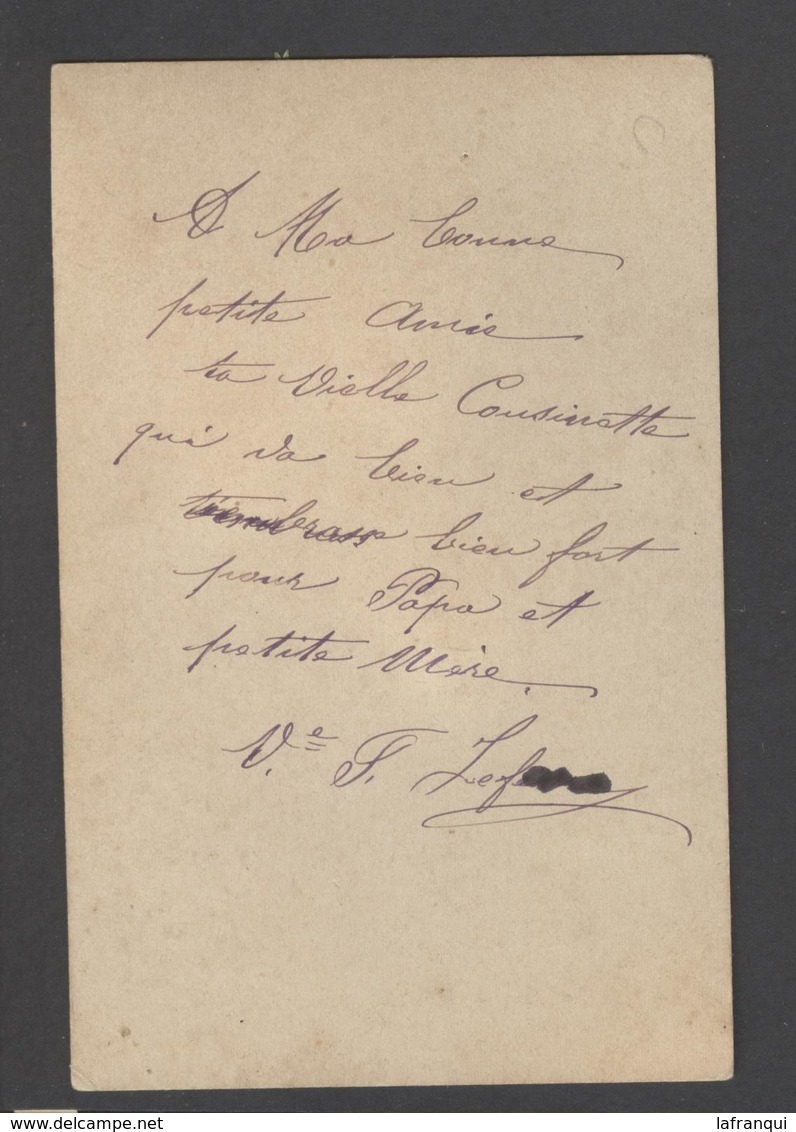 A Ma bonne
petite Amie
ta Vielle Cousinette
qui va bien et
t'embrasse bien fort
pour Papa et
petite Mère.
V.e F. Lef
lafranqui